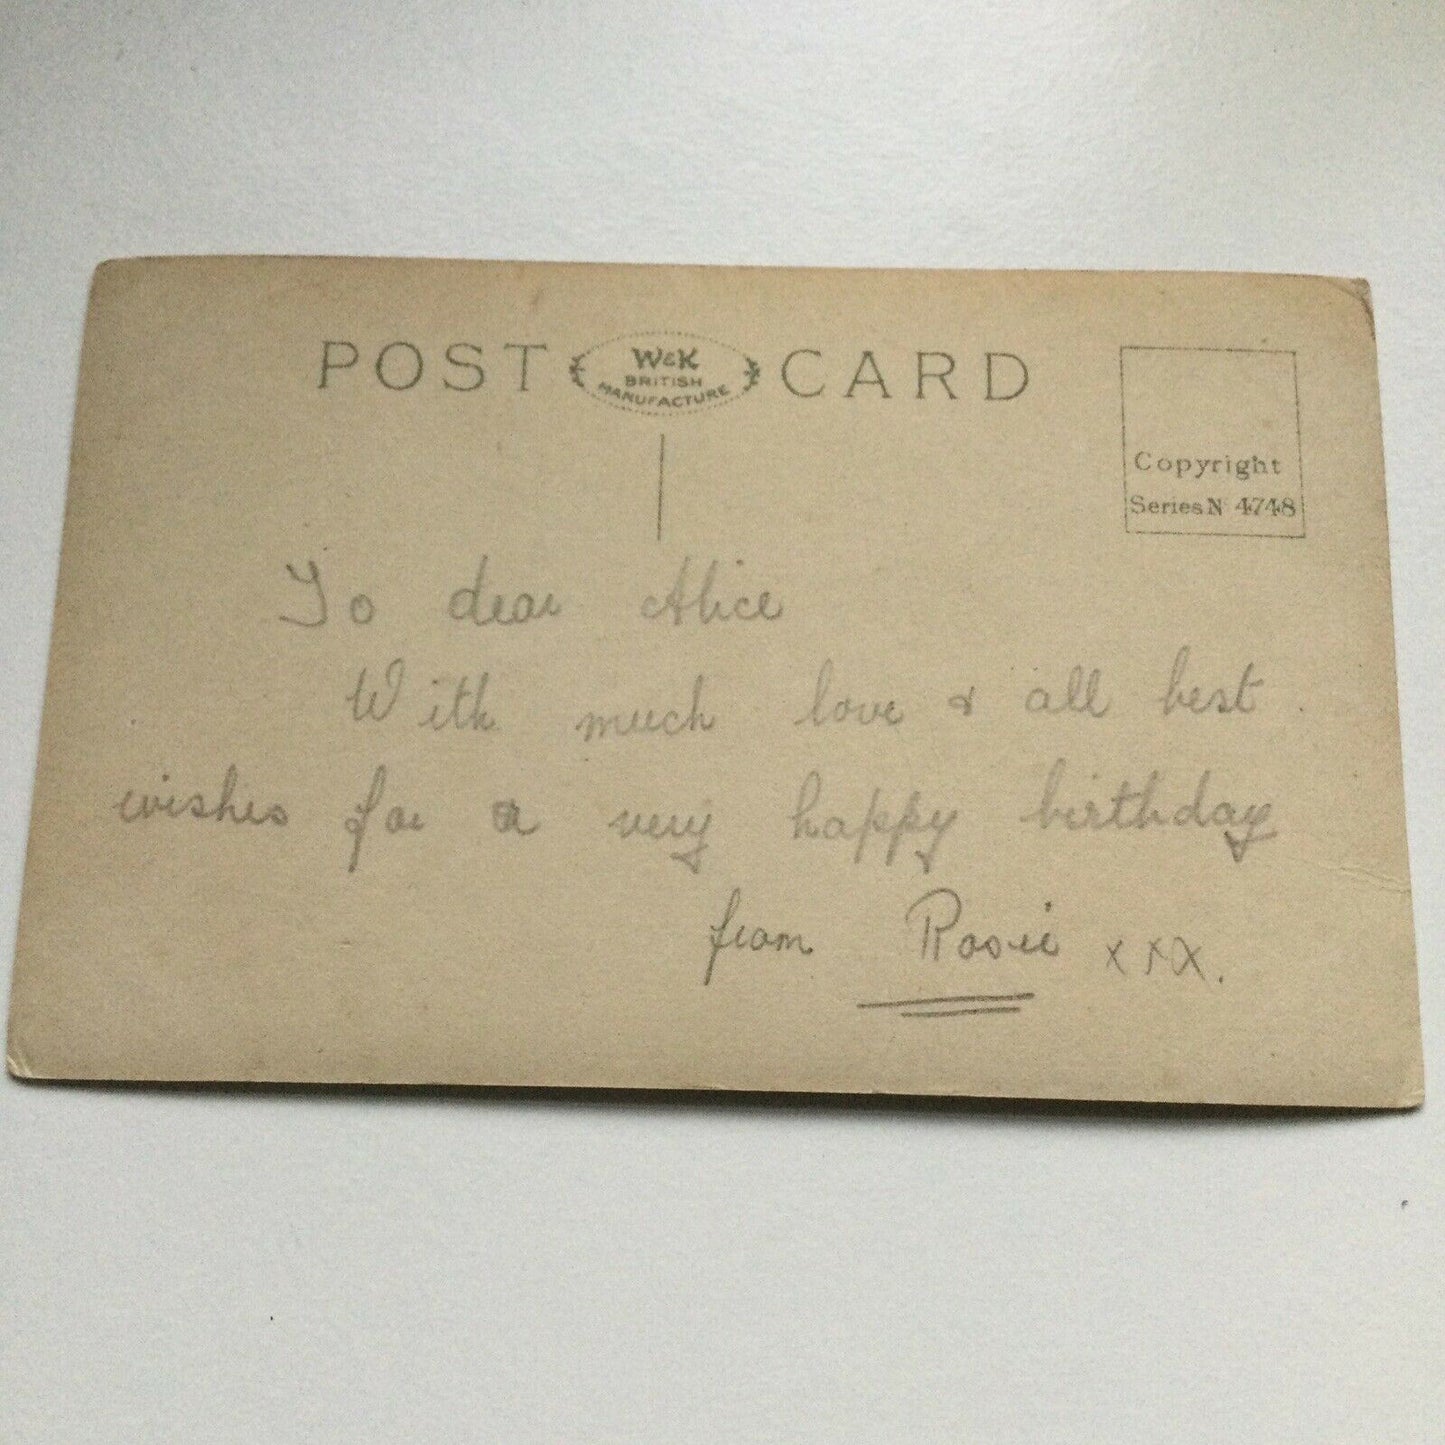 POST CARD
W&K
BRITISH
MANUFACTURE
Copyright
Series N 4748
To dear Alice
With much love & all best
wishes for a very happy birthday
from Rosie xxx.